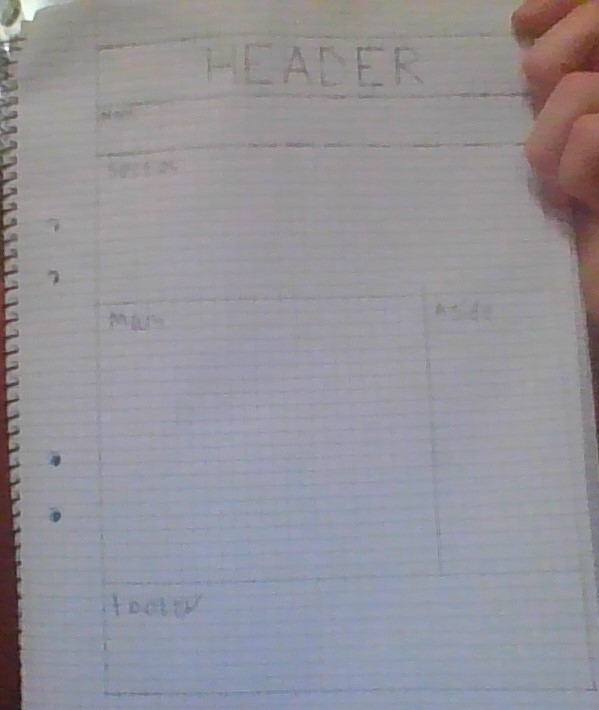 HEADER
Nav
Section
Main
Aside
footer